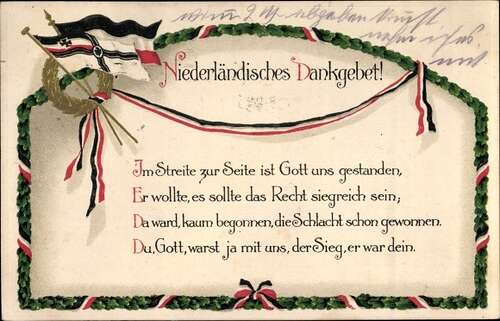 wenn 2 M abgeben kannst
mit
Niederländisches Dankgebet!
Im Streite zur Seite ist Gott uns gestanden,
Er wollte, es sollte das Recht siegreich sein;
Da ward, kaum begonnen, die Schlacht schon gewonnen.
Du, Gott, warst ja mit uns, der Sieg, er war dein.